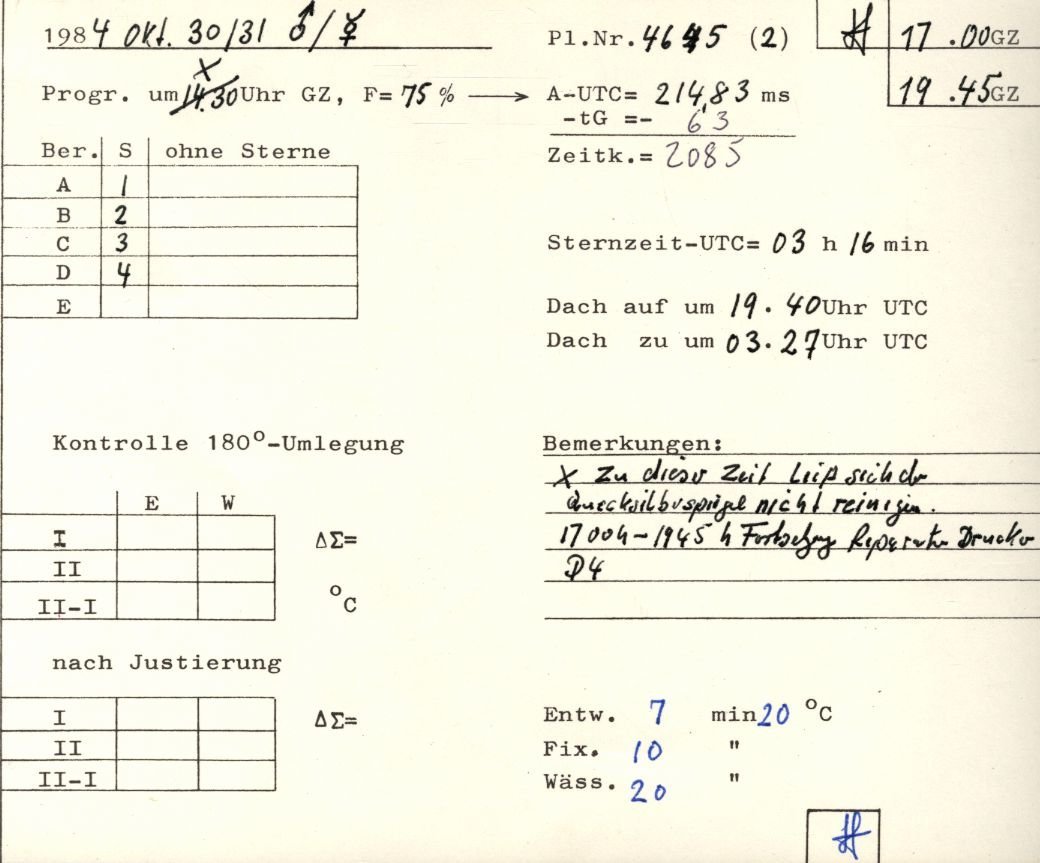 1984 Okt. 30/31 ♂/☿ Pl.Nr. 4645 (2) 17.00GZ
X 19.45GZ
Progr. um 14.30 Uhr GZ, F= 75 % → A-UTC= 214,83 ms
-tG =- 63
Zeitk.= 2085
Ber. S ohne Sterne
A 1
B 2
C 3
D 4
E
Sternzeit-UTC= 03 h 16 min
Dach auf um 19.40 Uhr UTC
Dach zu um 03.27 Uhr UTC
Kontrolle 180°-Umlegung
E W
I ΔΣ=
II
II-I °C
nach Justierung
I ΔΣ=
II
II-I
Bemerkungen:
X Zu dieser Zeit ließ sich der
Quecksilberspiegel nicht reinigen.
17 00h - 1945 h Fortsetzung Reparatur Drucker
D4
Entw. 7 min 20 °C
Fix. 10 "
Wäss. 20 "